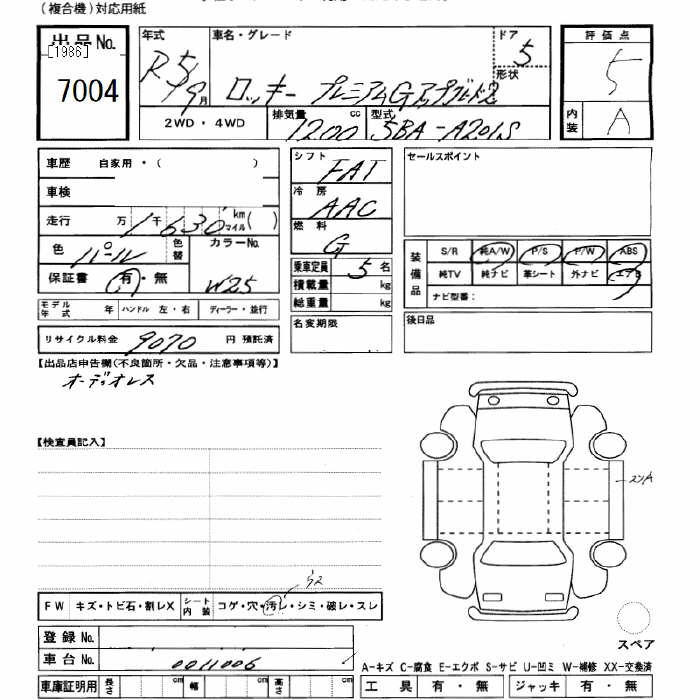 (複合機)対応用紙
出品No.
[1986]
7004
年式
R5/9月
車名・グレード
ロッキー プレミアムGアップグレード2
ドア
5
形状
2WD・4WD
排気量
1200 cc
型式
5BA-A201S
評価点
5
内装
A
車歴 自家用・( )
車検
走行 万 1 千 630 km マイル( )
色 パール 色替
カラーNo.
W25
保証書 有・無
モデル年式 年 ハンドル 左・右 ディーラー・並行
リサイクル料金 9070 円 預託済
シフト
FAT
冷房
AAC
燃料
G
乗車定員 5 名
積載量 kg
総重量 kg
名変期限
セールスポイント
装備品
S/R 純A/W P/S P/W ABS
純TV 純ナビ 革シート 外ナビ エアB
ナビ型番:
後日品
【出品店申告欄(不良箇所・欠品・注意事項等)】
オーディオレス
【検査員記入】
FW キズ・トビ石・割レX シート内装 コゲ・穴・汚レ・シミ・破レ・スレ
登録No.
車台No. 0011006
車庫証明用 長さ cm 幅 cm 高さ cm
スペア
A-キズ C-腐食 E-エクボ S-サビ U-凹ミ W-補修 XX-交換済
工具 有・無 ジャッキ 有・無